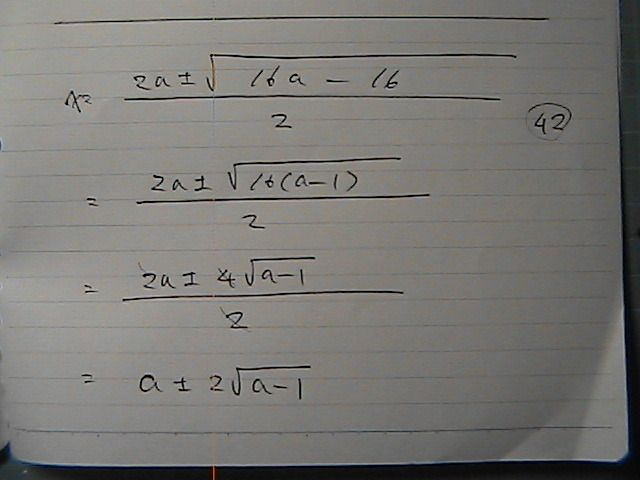 x = (2a ± √(16a - 16)) / 2
(42)
= (2a ± √(16(a-1))) / 2
= (2a ± 4√(a-1)) / 2
= a ± 2√(a-1)